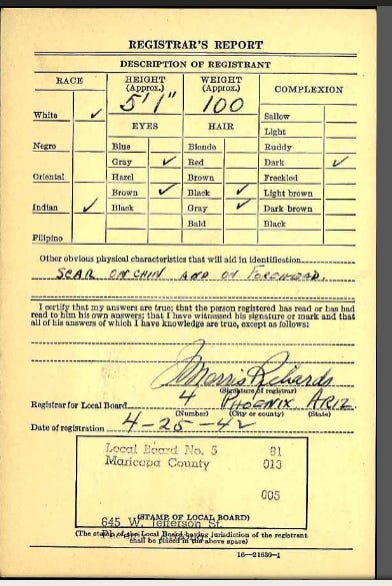 REGISTRAR'S REPORT
DESCRIPTION OF REGISTRANT
RACE
HEIGHT
(Approx.)
WEIGHT
(Approx.)
COMPLEXION
5' 1"
100
White ✓
EYES
HAIR
Sallow
Light
Negro
Blue
Blonde
Ruddy
Gray ✓
Red
Dark ✓
Oriental
Hazel
Brown
Freckled
Brown ✓
Black ✓
Light brown
Indian ✓
Black
Gray ✓
Dark brown
Bald
Black
Filipino
Other obvious physical characteristics that will aid in identification
SCAR ON CHIN AND ON FOREHEAD.
I certify that my answers are true; that the person registered has read or has had
read to him his own answers; that I have witnessed his signature or mark and that
all of his answers of which I have knowledge are true, except as follows:
Morris Richards
(Signature of registrar)
Registrar for Local Board 4 PHOENIX ARIZ.
(Number) (City or county) (State)
Date of registration 4-25-42
Local Board No. 5 81
Maricopa County 013
005
(STAMP OF LOCAL BOARD)
645 W. Jefferson St.
(The stamp of the Local Board having jurisdiction of the registrant
shall be placed in the above space)
16—21630-1